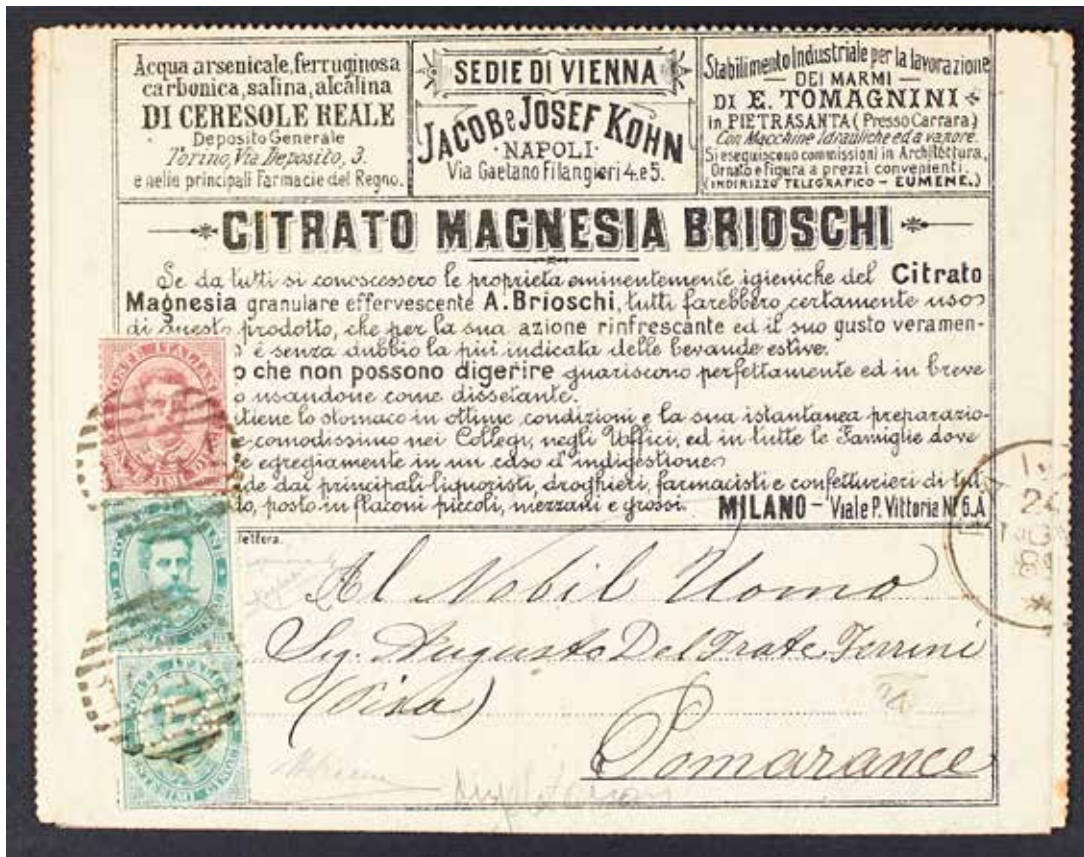 Acqua arsenicale, ferruginosa
carbonica, salina, alcalina
DI CERESOLE REALE
Deposito Generale
Torino, Via Deposito, 3.
e nelle principali Farmacie del Regno.
SEDIE DI VIENNA
JACOB e JOSEF KOHN
· NAPOLI ·
Via Gaetano Filangieri 4. e 5.
Stabilimento Industriale per la lavorazione
— DEI MARMI —
DI E. TOMAGNINI
in PIETRASANTA (Presso Carrara)
Con Macchine Idrauliche ed a vapore.
Si eseguiscono commissioni in Architettura,
Ornato e figura a prezzi convenienti.
(INDIRIZZO TELEGRAFICO – EUMENE.)
CITRATO MAGNESIA BRIOSCHI
Se da tutti si conoscessero le proprietà eminentemente igieniche del Citrato
Magnesia granulare effervescente A. Brioschi, tutti farebbero certamente uso
di questo prodotto, che per la sua azione rinfrescante ed il suo gusto veramen-
è senza dubbio la più indicata delle bevande estive.
o che non possono digerire guariscono perfettamente ed in breve
o usandone come dissetante.
tiene lo stomaco in ottime condizioni e la sua istantanea preparazio-
e comodissimo nei Collegi, negli Uffici, ed in tutte le Famiglie dove
e egregiamente in un caso d'indigestione
de dai principali liquoristi, droghieri, farmacisti e confetturieri di tut-
do, posto in flaconi piccoli, mezzani e grossi. MILANO – Viale P. Vittoria Nº 6. A
lettera.
Al Nobil Uomo
Sig. Augusto Del Frate Ferrini
(Pisa)
Pomarance